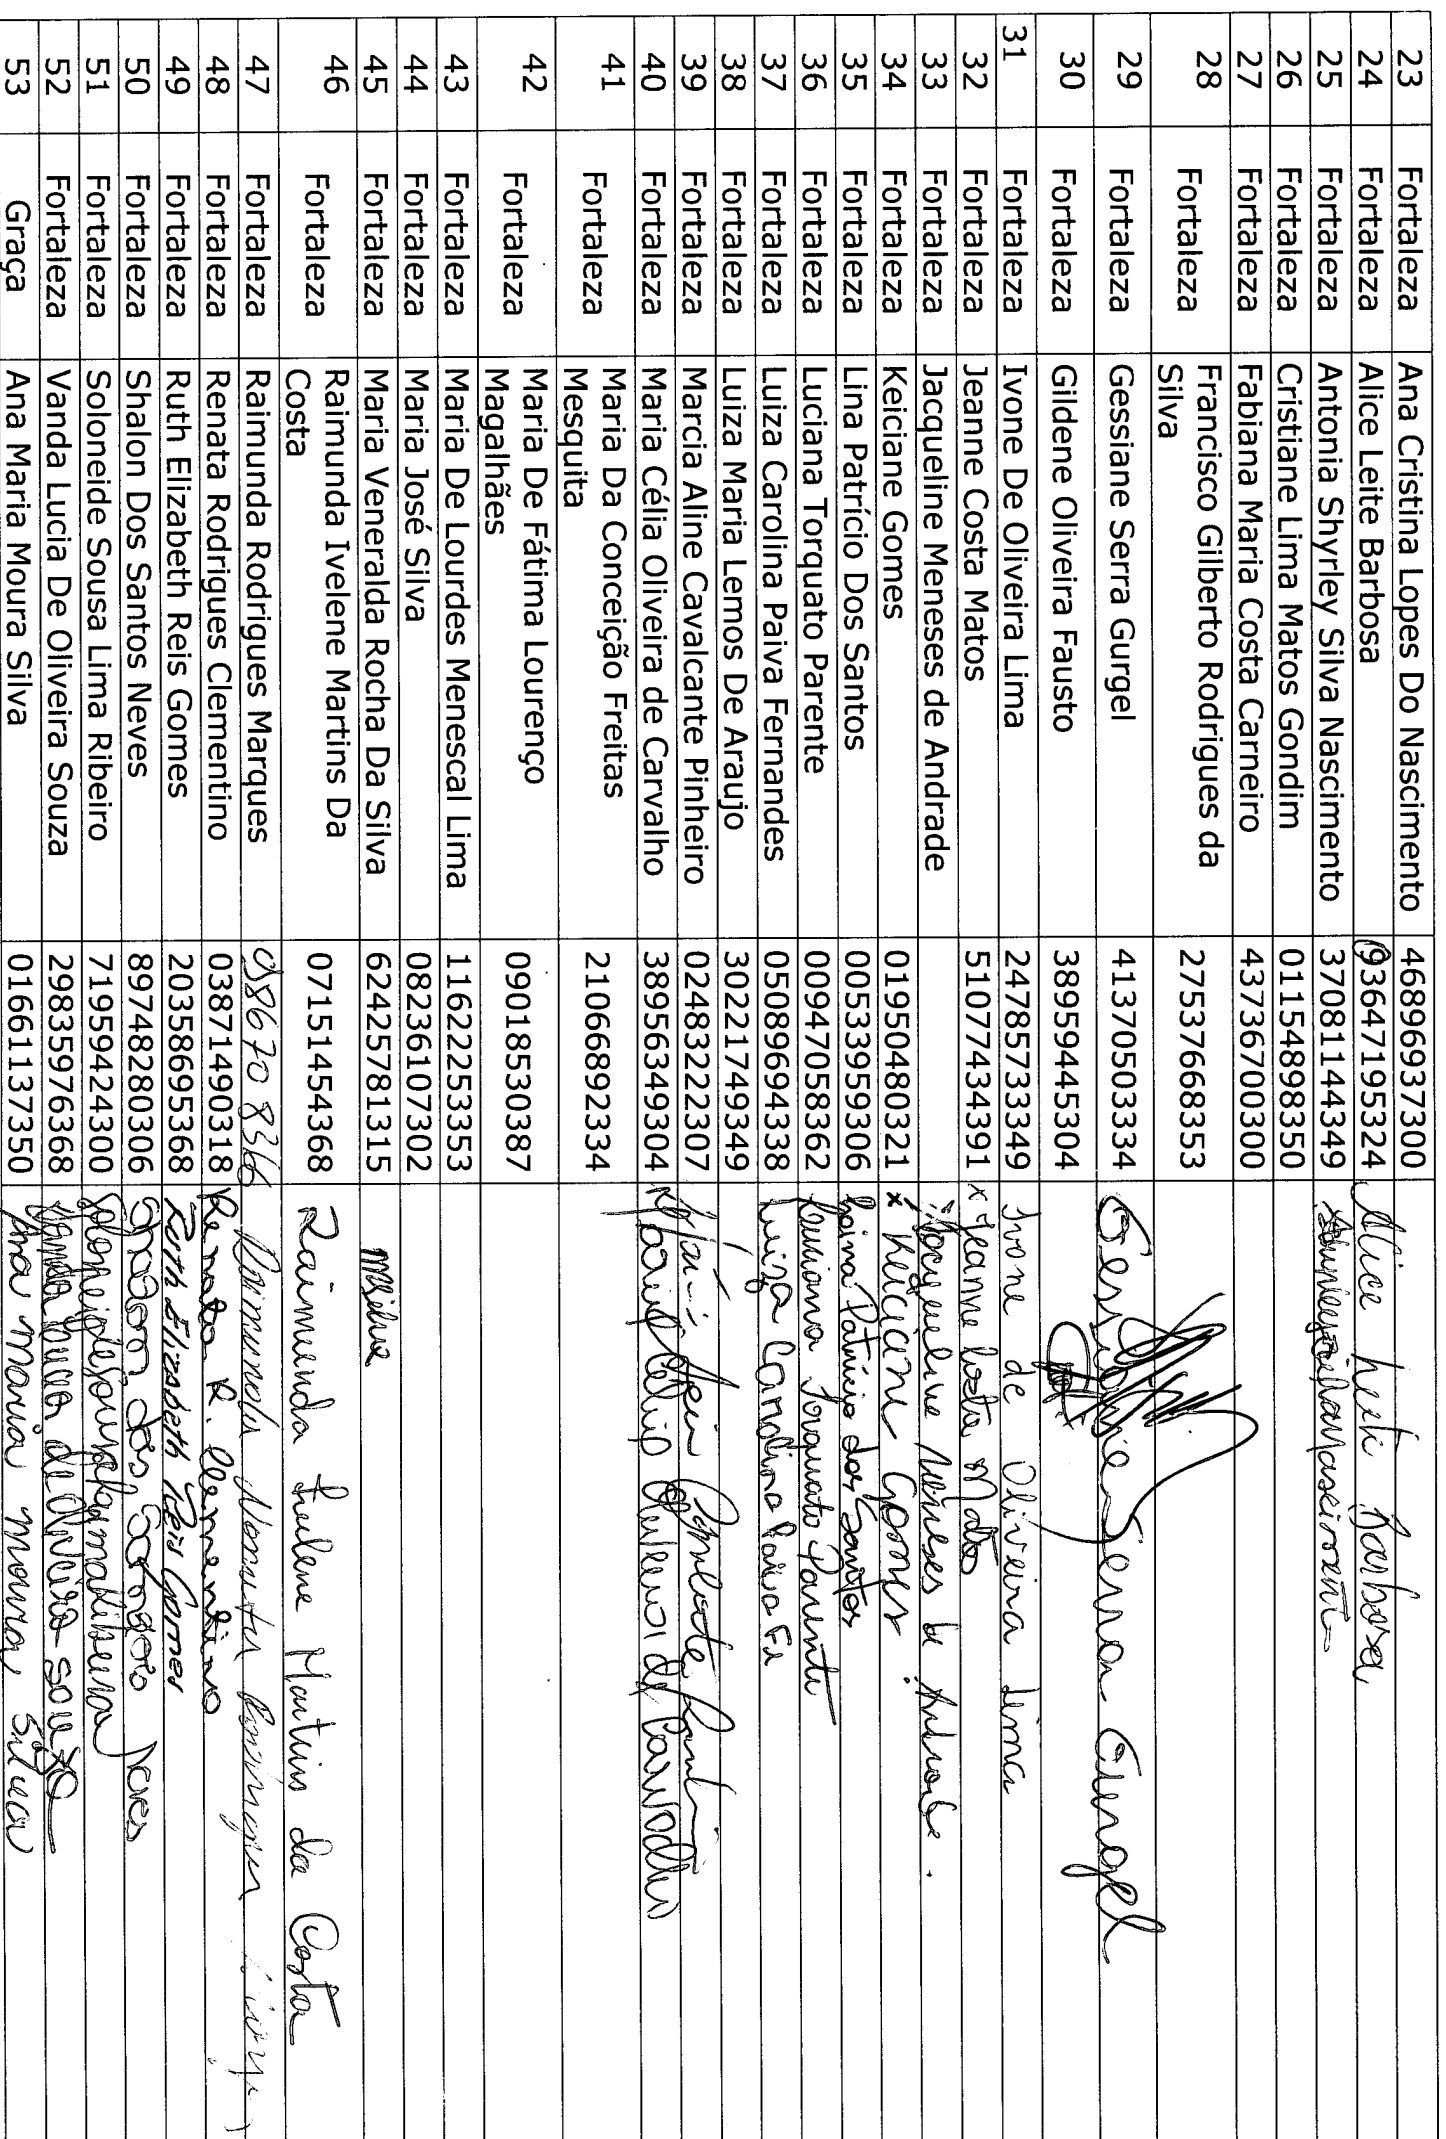 23 Fortaleza Ana Cristina Lopes Do Nascimento 46896937300
24 Fortaleza Alice Leite Barbosa 93647195324 Alice Leite Barbosa
25 Fortaleza Antonia Shyrley Silva Nascimento 37081144349
26 Fortaleza Cristiane Lima Matos Gondim 01154898350
27 Fortaleza Fabiana Maria Costa Carneiro 43736700300
28 Fortaleza Francisco Gilberto Rodrigues da
Silva 27537668353
29 Fortaleza Gessiane Serra Gurgel 41370503334 Gessiane Serra Gurgel
30 Fortaleza Gildene Oliveira Fausto 38959445304
31 Fortaleza Ivone De Oliveira Lima 24785733349 Ivone de Oliveira Lima
32 Fortaleza Jeanne Costa Matos 51077434391 x Jeanne Costa Matos
33 Fortaleza Jacqueline Meneses de Andrade Jacqueline Meneses de Andrade.
34 Fortaleza Keiciane Gomes 01950480321 x Keiciane Gomes
35 Fortaleza Lina Patrício Dos Santos 00533959306 Patrício dos Santos
36 Fortaleza Luciana Torquato Parente 00947058362 Luciana Torquato Parente
37 Fortaleza Luiza Carolina Paiva Fernandes 05089694338 Luiza Carolina Paiva Fe
38 Fortaleza Luiza Maria Lemos De Araujo 30221749349
39 Fortaleza Marcia Aline Cavalcante Pinheiro 02483222307
40 Fortaleza Maria Célia Oliveira de Carvalho 38956349304 Maria Célia Oliveira de Carvalho
41 Fortaleza Maria Da Conceição Freitas
Mesquita 21066892334
42 Fortaleza Maria De Fátima Lourenço
Magalhães 09018530387
43 Fortaleza Maria De Lourdes Menescal Lima 11622253353
44 Fortaleza Maria José Silva 08236107302
45 Fortaleza Maria Veneralda Rocha Da Silva 62425781315
46 Fortaleza Raimunda Ivelene Martins Da
Costa 07151454368 Raimunda Ivelene Martins da Costa
47 Fortaleza Raimunda Rodrigues Marques Raimunda
48 Fortaleza Renata Rodrigues Clementino 03871490318 Renata R. Clementino
49 Fortaleza Ruth Elizabeth Reis Gomes 20358695368 Ruth Elizabeth Reis Gomes
50 Fortaleza Shalon Dos Santos Neves 89748280306 Shalon dos Santos Neves
51 Fortaleza Soloneide Sousa Lima Ribeiro 71959424300 Soloneide Sousa Lima Ribeiro
52 Fortaleza Vanda Lucia De Oliveira Souza 29835976368 Vanda Lucia de Oliveira Souza
53 Graça Ana Maria Moura Silva 01661137350 Ana Maria Moura Silva